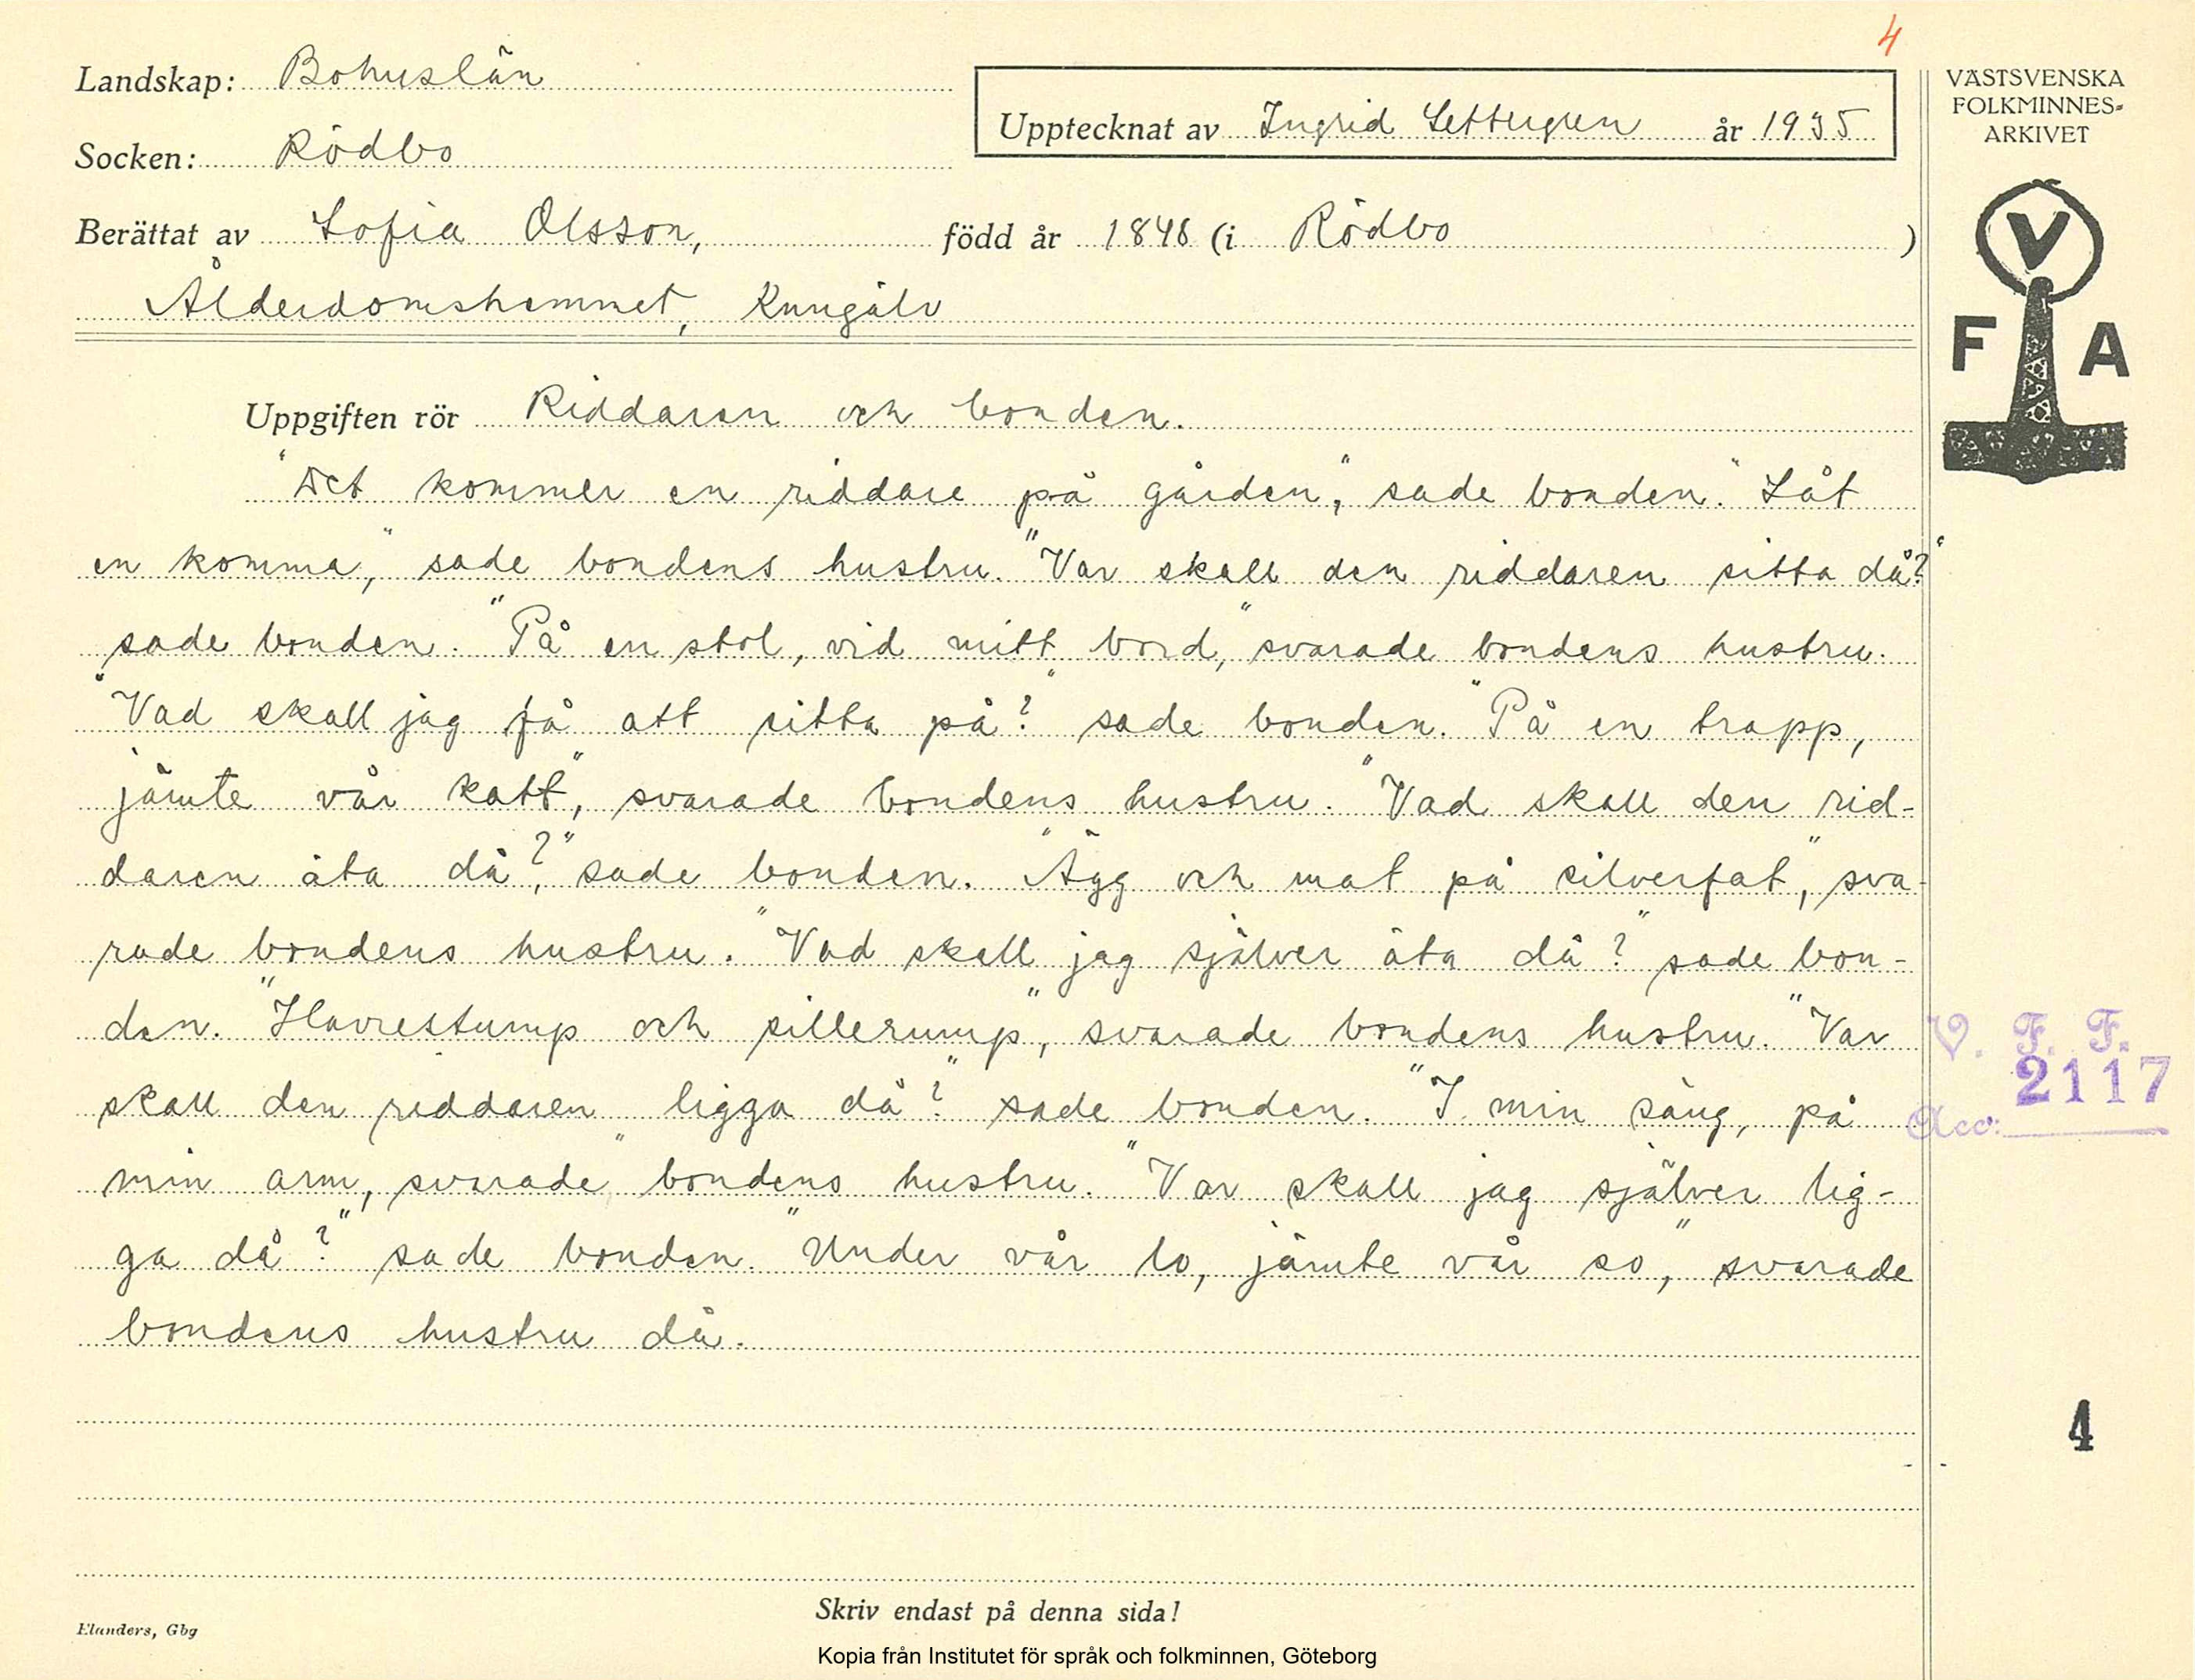 4
Landskap: Bohuslän
VÄSTSVENSKA
FOLKMINNES-
ARKIVET
Upptecknat av Ingrid Settergren år 1935
Socken: Rödbo
Berättat av Sofia Olsson, född år 1848 (i Rödbo )
Ålderdomshemmet, Kungälv
V
F A
Uppgiften rör Riddaren och bonden.
"Det kommer en riddare på gården", sade bonden. "Låt
en komma," sade bondens hustru. "Var skall den riddaren sitta då?"
sade bonden. "På en stol, vid mitt bord," svarade bondens hustru.
"Vad skall jag få att sitta på?" sade bonden. "På en trapp,
jämte vår katt", svarade bondens hustru. "Vad skall den rid-
daren äta då?", sade bonden. "Ägg och mat på silverfat", sva-
rade bondens hustru. "Vad skall jag själver äta då?" sade bon-
den. "Havrestump och sillerump", svarade bondens hustru. "Var
skall den riddaren ligga då?" sade bonden. "I min säng, på
min arm", svarade bondens hustru. "Var skall jag själver lig-
ga då?" sade bonden. "Under vår lo, jämte vår so," svarade
bondens hustru då.
V. F. F.
2117
Acc:
4
Skriv endast på denna sida!
Elanders, Gbg
Kopia från Institutet för språk och folkminnen, Göteborg